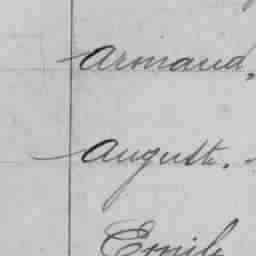 Armand.
August.
Emile